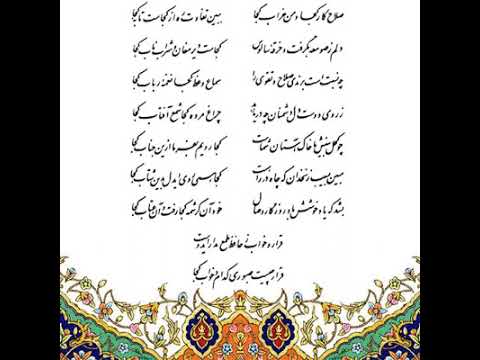 صلاح کار کجا و من خراب کجا ببین تفاوت ره از کجاست تا به کجا
دلم ز صومعه بگرفت و خرقه سالوس کجاست دیر مغان و شراب ناب کجا
چه نسبت است به رندی صلاح و تقوی را سماع وعظ کجا نغمه رباب کجا
ز روی دوست دل دشمنان چه دریابد چراغ مرده کجا شمع آفتاب کجا
چو کحل بینش ما خاک آستان شماست کجا رویم بفرما ازین جناب کجا
مبین به سیب زنخدان که چاه در راه است کجا همی روی ای دل بدین شتاب کجا
بشد که یاد خوشش باد روزگار وصال خود آن کرشمه کجا رفت و آن عتاب کجا
قرار و خواب ز حافظ طمع مدار ای دوست
قرار چیست صبوری کدام و خواب کجا